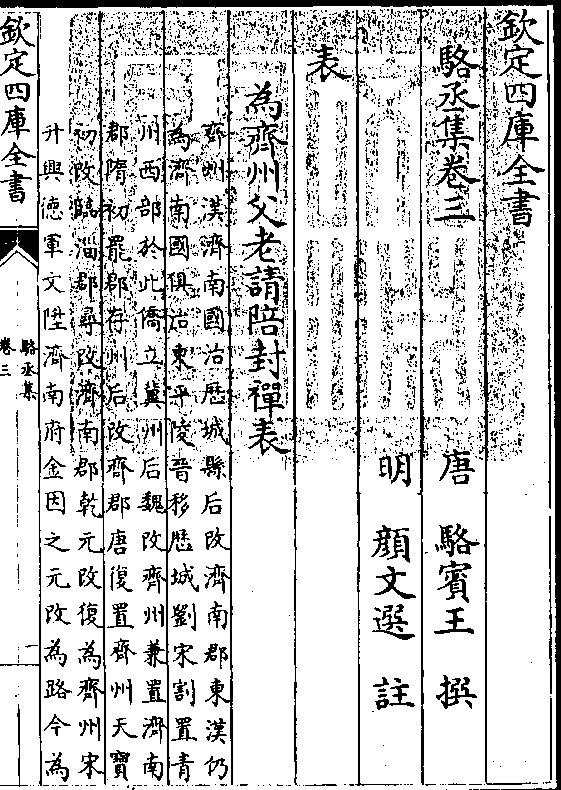 欽定四庫全書
駱丞集卷三　唐　駱賓王　撰
明　顏文選　註
表
為齊州父老請陪封禪表
齊州漢濟南國治歷城縣后改濟南郡東漢仍
為濟南國俱治東平陵晉移歷城劉宋割置青
州西部於此僑立冀州后魏改齊州兼置濟南
郡隋初罷郡存州后改齊郡唐復置齊州天寶
初改臨淄郡尋改濟南郡乾元改復為齊州宋
升興德軍文陞濟南府金因之元改為路今為
欽定四庫全書
駱丞集
卷三